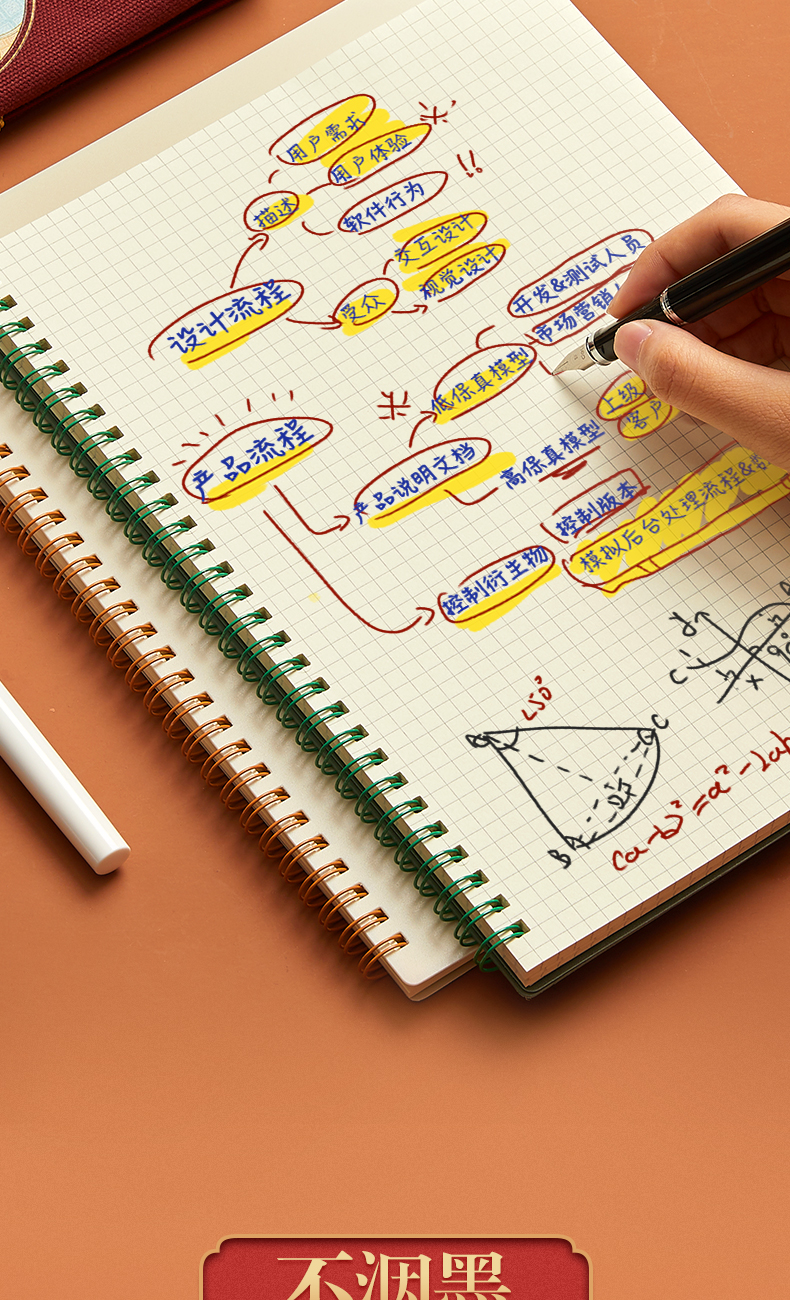 用户需求
用户体验
描述
软件行为
交互设计
视觉设计
受众
设计流程
开发&测试人员
市场营销
低保真模型
上级
客户
产品流程
产品说明文档
高保真模型
控制版本
模拟后台处理流程&
控制衍生物
y
C
x
∠50°
C
B
(a-b)²=a²-2ab
不洇墨